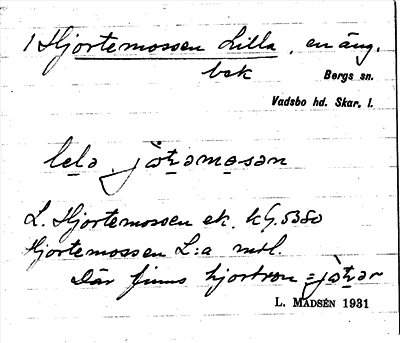 1 Hjortemossen Lilla, en äng.
bsk
Bergs sn.
Vadsbo hd. Skar. l.
lela jötəmosən
L. Hjortemossen ek. kG. 5380
Hjortemossen L:a mtl.
Där finns hjortron = jötər
L. MADSÉN 1931